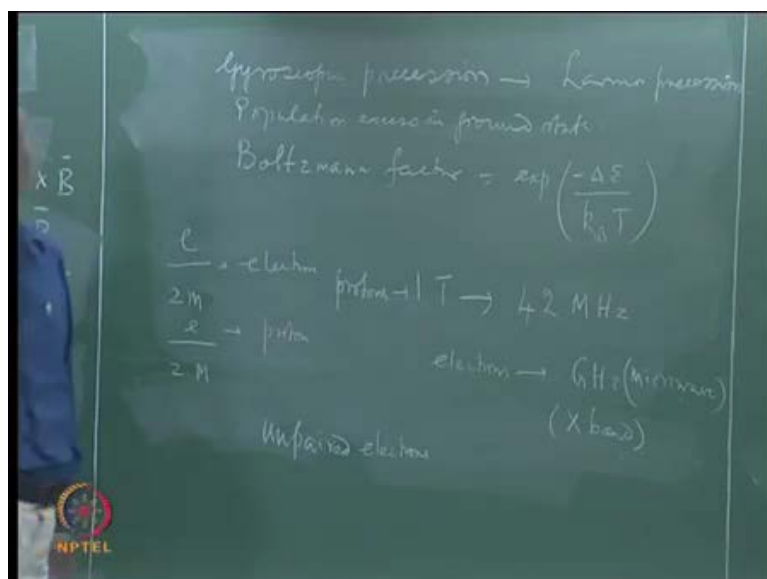 Gyroscopic precession → Larmor precession
Population excess in ground state
Boltzmann factor = exp(-Δε / k_B T)
x B
e / 2m → electron
proton → 1 T → 42 MHz
e / 2M → proton
electron → GHz (microwave)
(X band)
Unpaired electrons
NPTEL